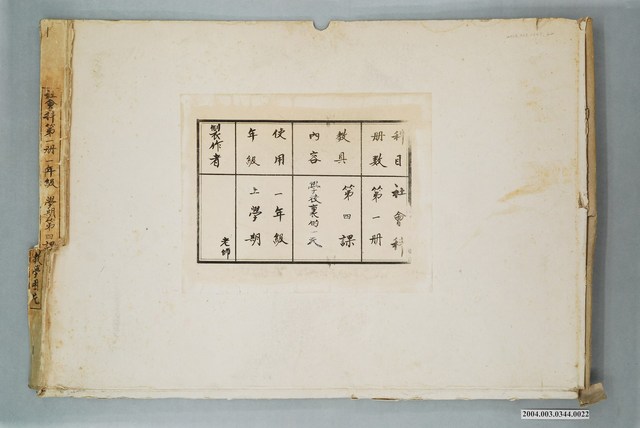 科目
冊數
社會科
第一冊
教具
內容
第四課
學校裏的一天
使用
年級
一年級
上學期
製作者
老師
社會科第一冊一年級上學期第四課
教學圖片
2004.003.0344.0022